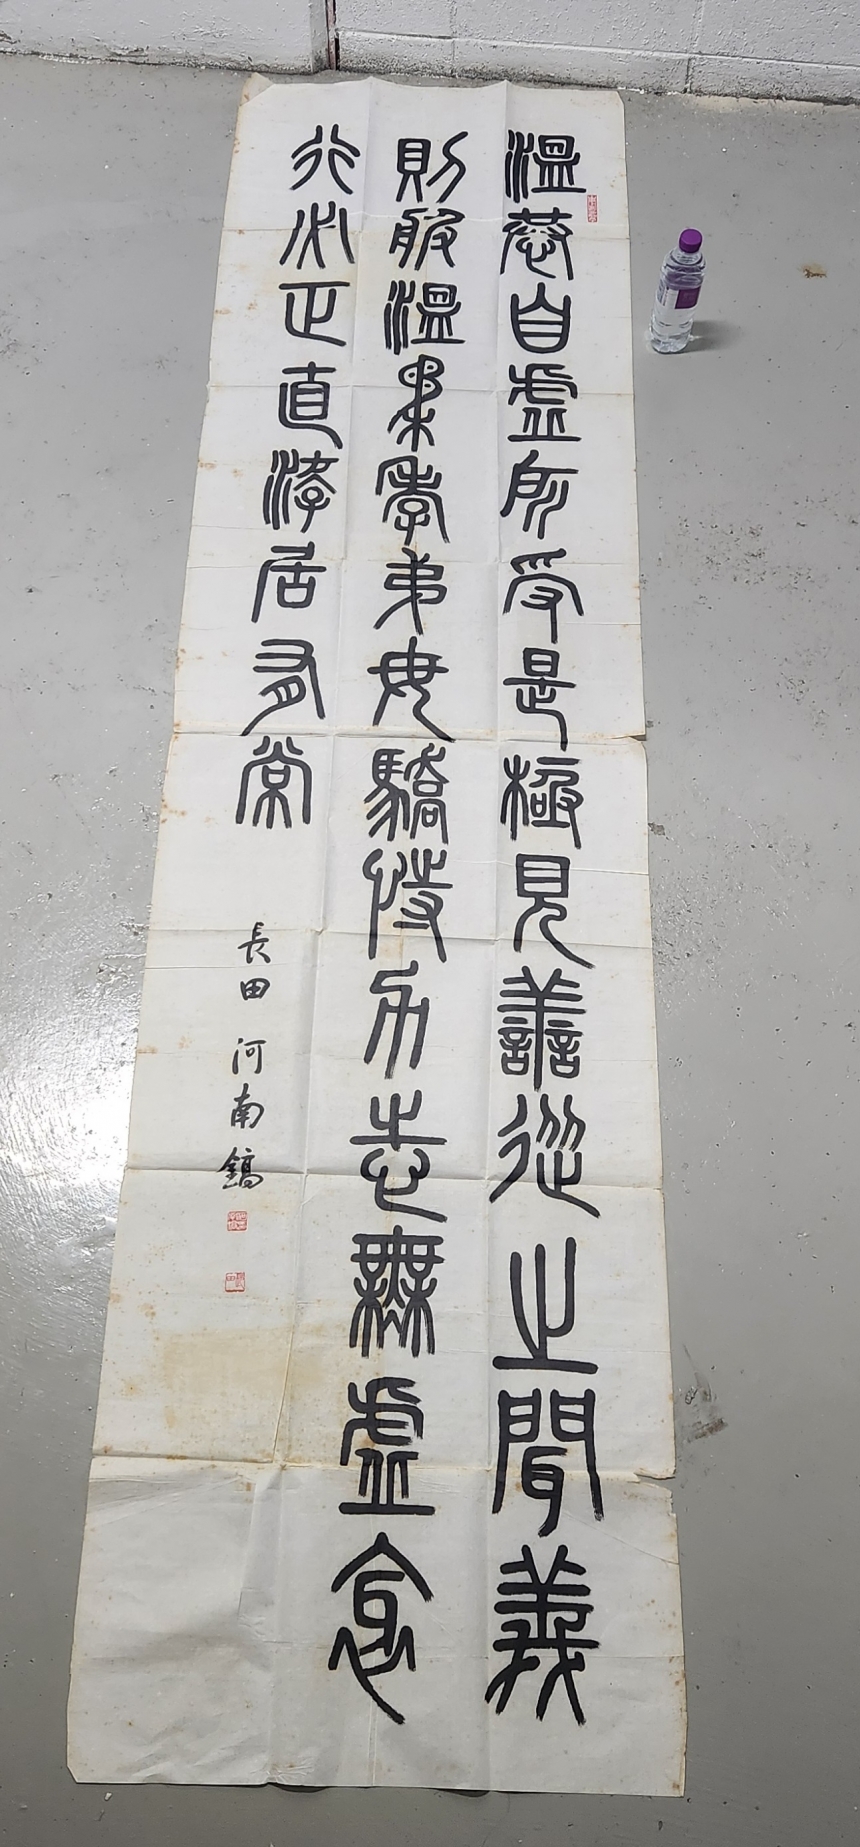 溫恭自虛所受是極見善從之聞義
則服溫柔孝弟毋驕恃力志無虛
行必正直游居有常
長田 河南鎬